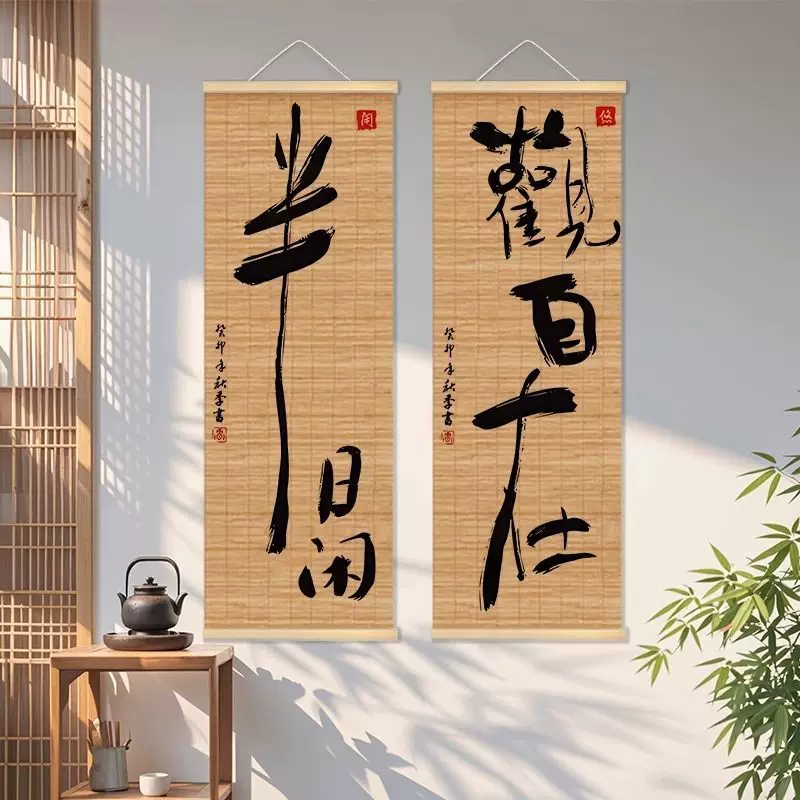 闲
半日闲
癸卯年秋季書
悠
觀自在
癸卯年秋季書